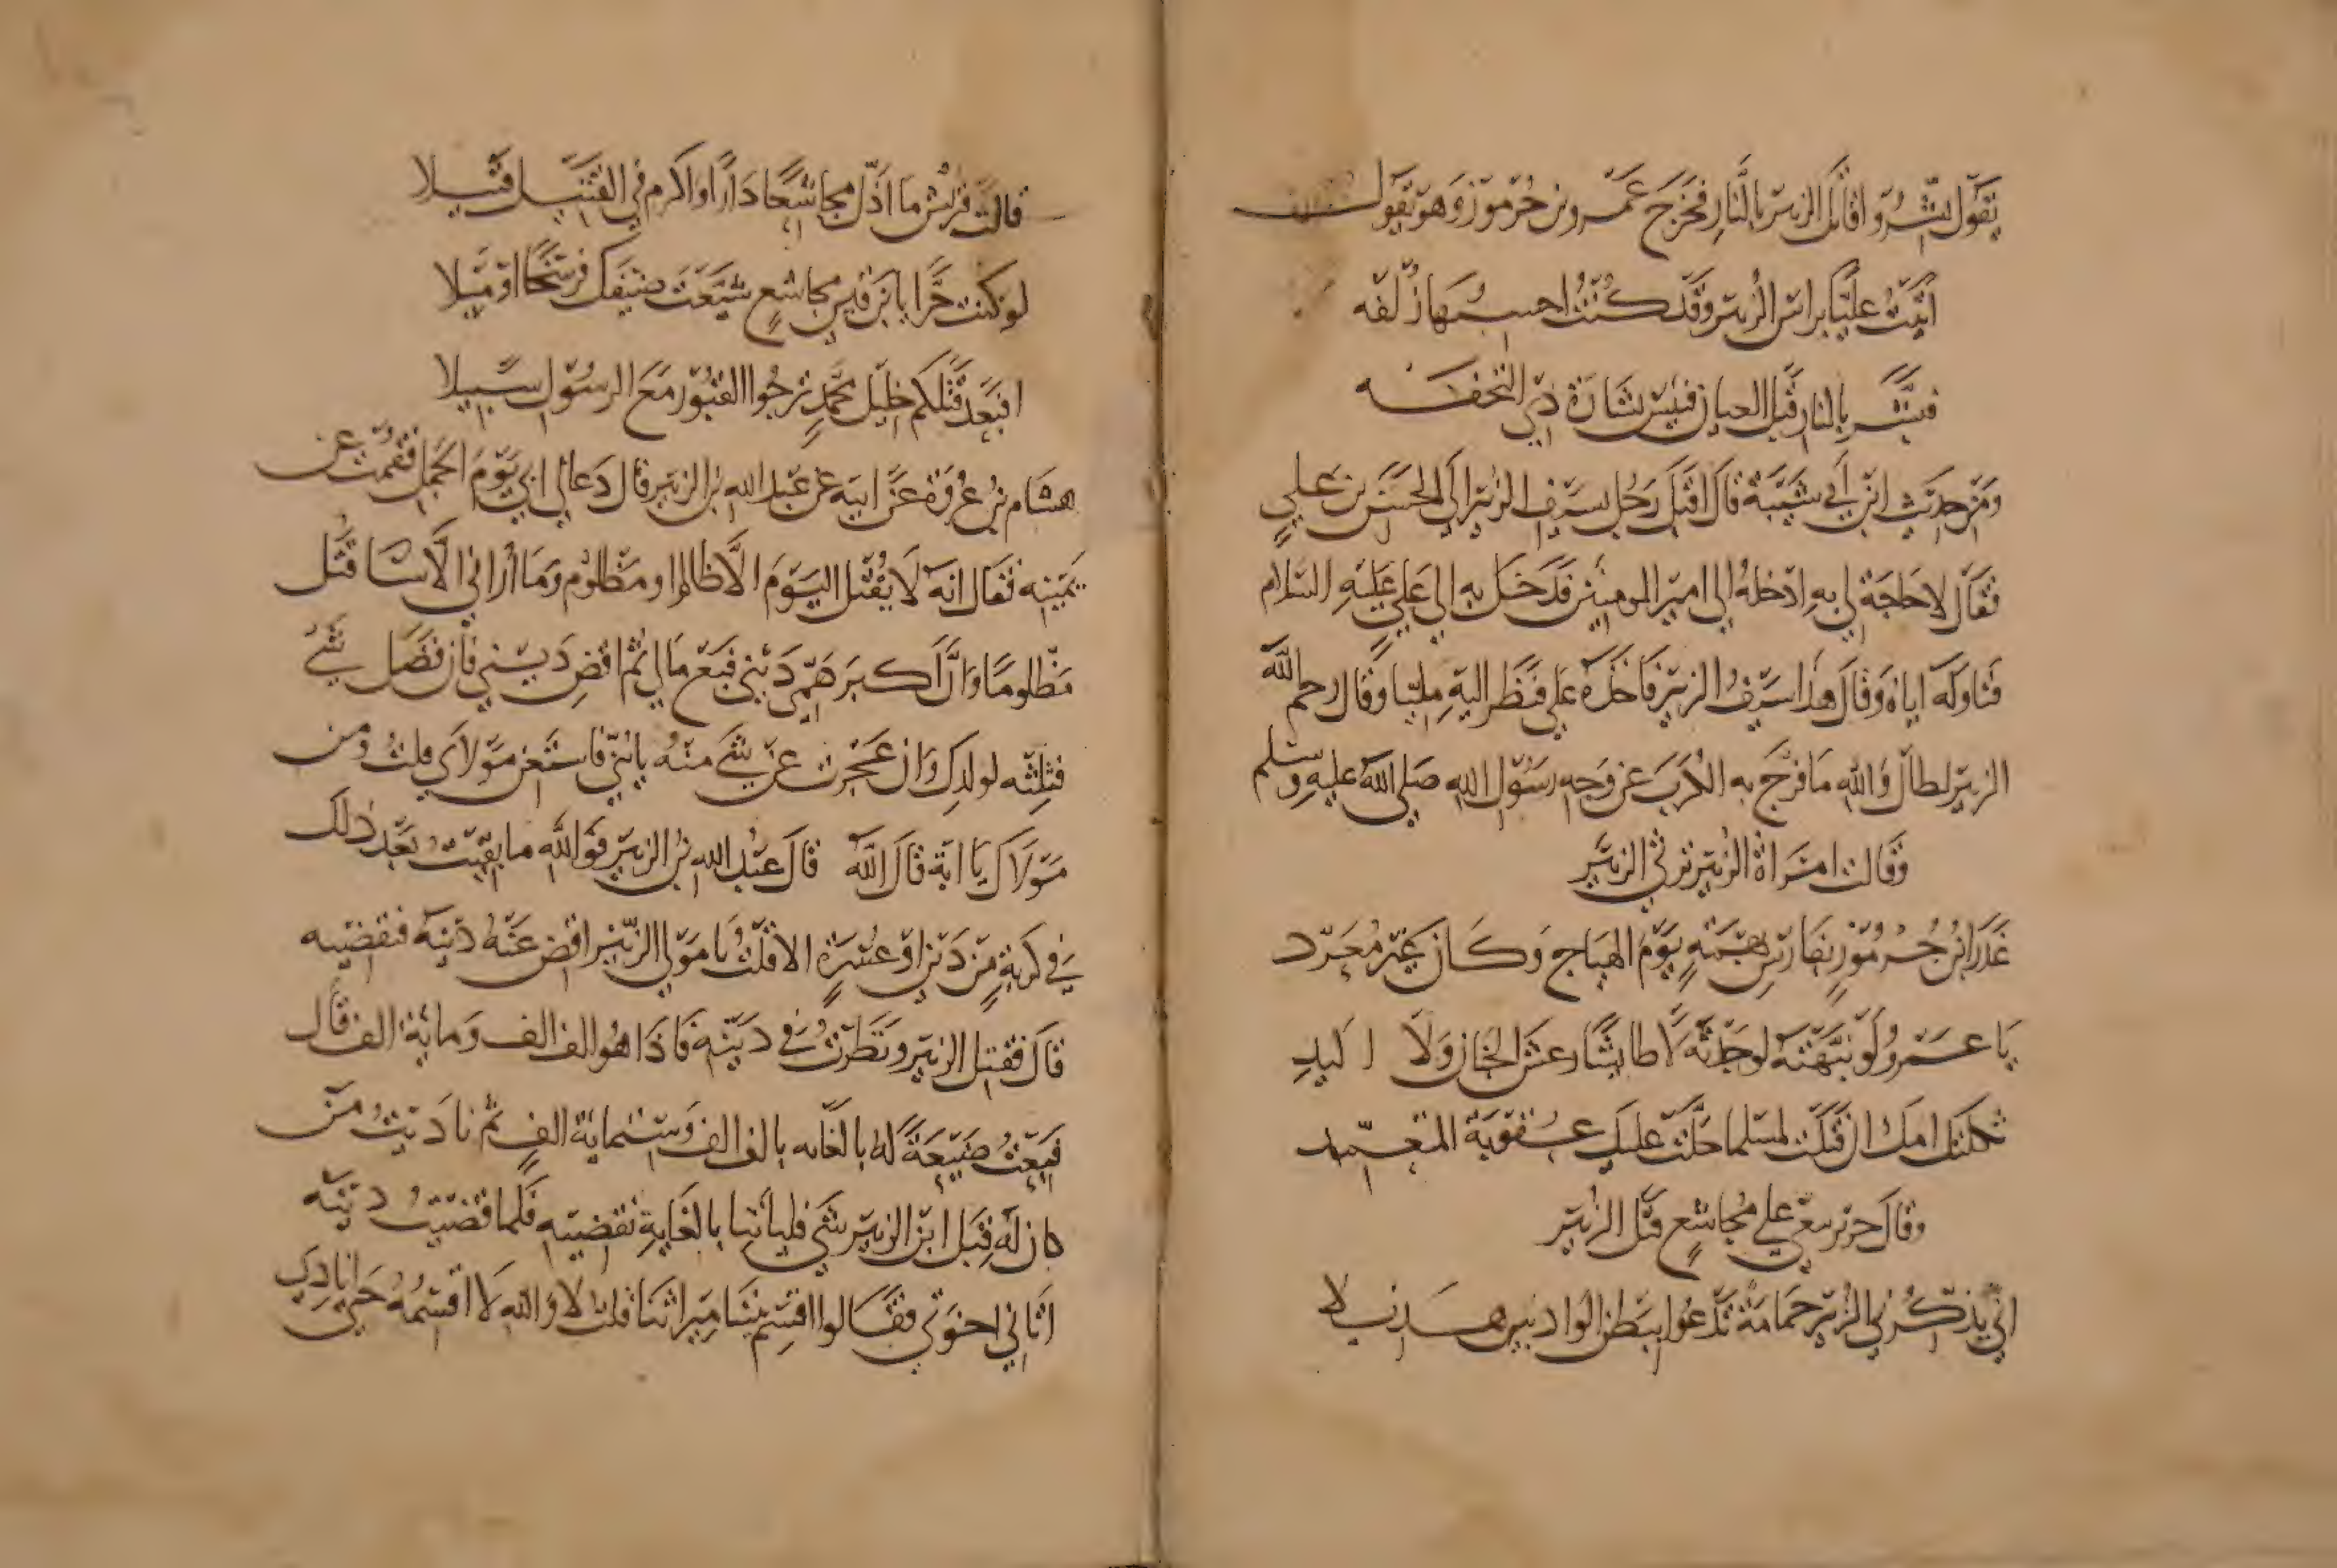 يَقول بَشِّرُوا قاتل الزبير بالنَّارِ فخَرَجَ عَمْرو بن جُرموز وَهو يَقول
أتَيْتُ عليًّا براس الزُبير وقد كُنْتُ احسِبُها زُلْفَه
فبشَّر بالنار قبل العيان فبئس بشارَة ذي التحفَه
ومن حديث ابن أبي شَيْبَة قال اقبل رَجُل بسيف الزبير الى الحَسَن بن عَلي
فقال لا حاجَة لي به ادخلهُ الي امير المومنين فدخل به الي علي عَلَيْهِ السَّلام
فناوله اياه وَقال هذا سيفُ الزبير فاخَذَه علي فنظر اليهِ مليّا وقال رحم الله
الزبير لطال وَالله مَا فرّج به الكرْبَ عن وَجه رسُول الله صَلي الله عليهِ وسَلم
وَقالت امرَاة الزُبير ترثي الزبير
غَدَرَ ابنُ جُرمُوزٍ بفارِسِ بهمَةٍ يَوْمَ الهيَاج وَكَان غَيْرَ مُعَرّد
يَا عَمْرُو لَوْ نبَّهْتَه لوَجَدتَه لَا طائشًا رعش الجنان وَلَا اليدِ
ثكلتك امك ان قتلت لمسلما حلّت عليك عقوبَة المتعمّد
وقال جرير ينعي علي مُجاشعٍ قتل الزُبير
اني يُذكِّرُني الزُبير حَمامَة تَدْعُوا ببَطن الوَاديين هَديلا
قالت قريش ما اذل مجاشعًا دَارًا وَاكرم في القتيل قتيلا
لو كنت حرًّا يا بن قين مجاشعٍ شيّعْتَ ضيفك فرسَخًا او مِيلا
افبَعْدَ قتلكم خليل مُحمدٍ ترجُوا القبُور مَعَ الرسُول سَبيلا
هشام بن عُروَة عَن ابيه عن عَبد الله بن الزبير قال دَعاني ابي يَوْمَ الجمل فقُمت عن
يَمينِه فقال انه لَا يُقْتل اليَوْمَ الَّا ظالم او مَظلوم وَمَا أراني الَّا سَا قتل
مَظلومًا وَانَّ أكبَر هَمّي دَيْني فبِعْ مَالي ثم اقضِ دَيني فان فَضَل شَيْءُ
فثلثه لولدك وَان عَجزت عن شَيْ منه يا بني فاستعن مَوْلَاي قلتُ وَمن
مَوْلَاك يَا ابَة قالَ اللهُ قالَ عَبْد الله بنُ الزبير فوَالله ما بقيتُ بَعْد ذلك
في كربةٍ مِنْ دَينه او عُسْرَةٍ الا قلْتُ يَا مَوْلي الزبير اقض عَنْهُ دَيْنه فيقضيه
قالَ فقتل الزبير وَنَظَرْتُ في دَيْنه فاذَا هُو الف الف وَمائة الف قال
فبِعْتُ ضَيْعَةً له بالغابه بالف الف وَستمائة الفٍ ثم نادَيْتُ مَن
كان له قِبَل ابن الزبير شَيْ فليأتنا بالغابةِ نقضيه فَلما قضيْتُ دَيْنَه
اتاني اخوَتي فقالوا اقسِم بيننا مِيرَاثنا قلت لَا وَالله لَا اقسِمُهُ حَتي انادي